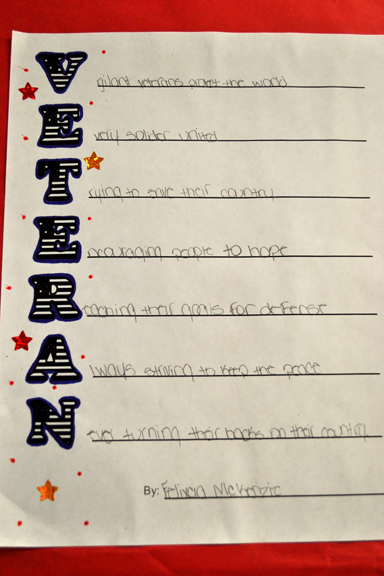 V igilant vetrans protet the world
E very solider united
T rying to save their country
E ncouraging people to hope
R eaching their goals for defense
A lways striving to keep the peace
N ever turning their backs on their country
By: Felicia McKenzie